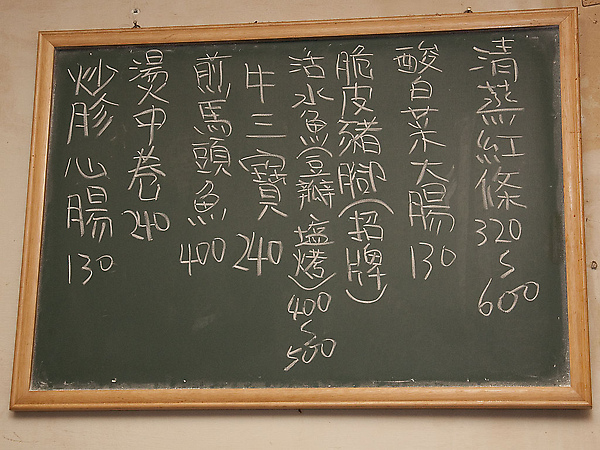 清蒸紅條320~600
酸白菜大腸130
脆皮豬腳(招牌)
活水魚(豆瓣、塩烤)400~500
牛三寶240
煎馬頭魚400
燙中卷240
炒胗心腸130